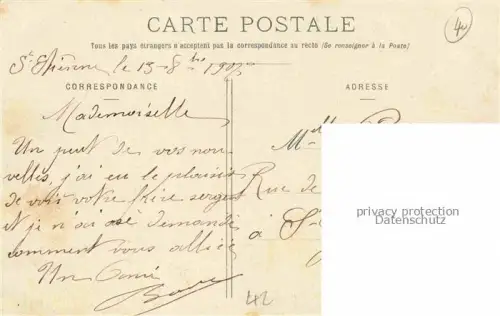 CARTE POSTALE
Tous les pays étrangers n'acceptent pas la correspondance au recto (Se renseigner à la Poste)
40
St Etienne le 13-8bre 1905
CORRESPONDANCE
ADRESSE
Mademoiselle
Mlle
Un peut de vos nou
velles, j'ai eu le plaisir
de voir votre frère serge
Rue de
et je n'ai osé demandé
à St
comment vous alliez
Un Ami
42
privacy protection
Datenschutz